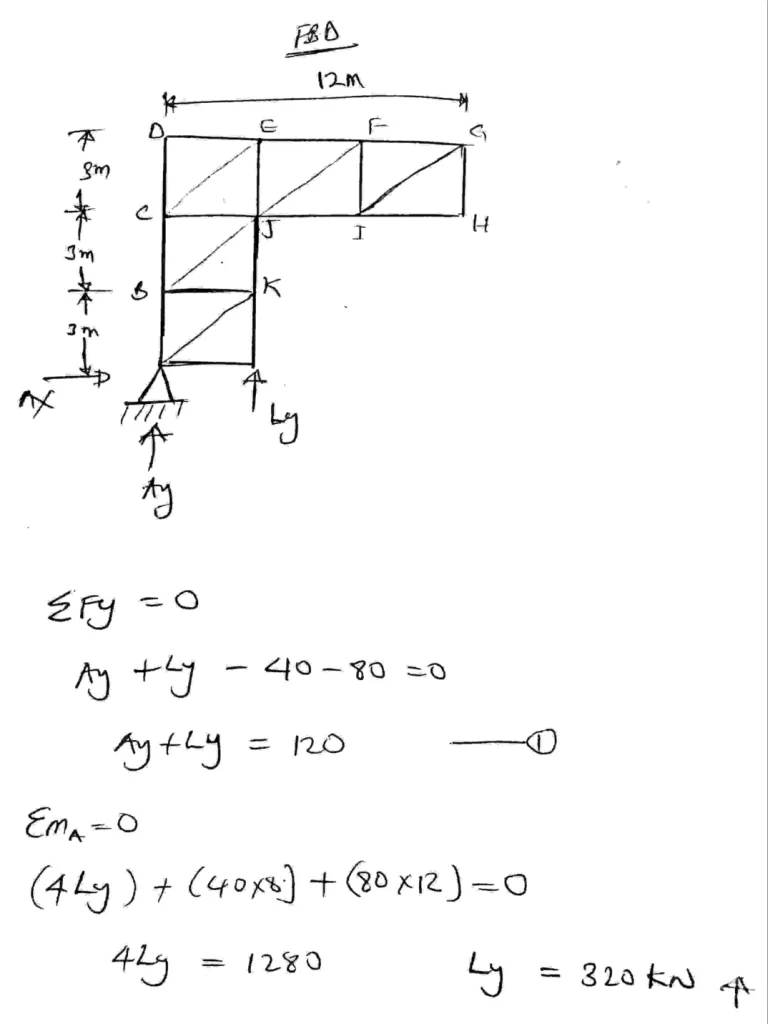 FBD
12m
D E F G
3m
C J I H
3m
B K
3m
AX
Ly
Ay
ΣFy = 0
Ay + Ly - 40 - 80 = 0
Ay + Ly = 120 ——①
ΣmA = 0
(4Ly) + (40x8] + (80x12) = 0
4Ly = 1280 Ly = 320 kN ↑